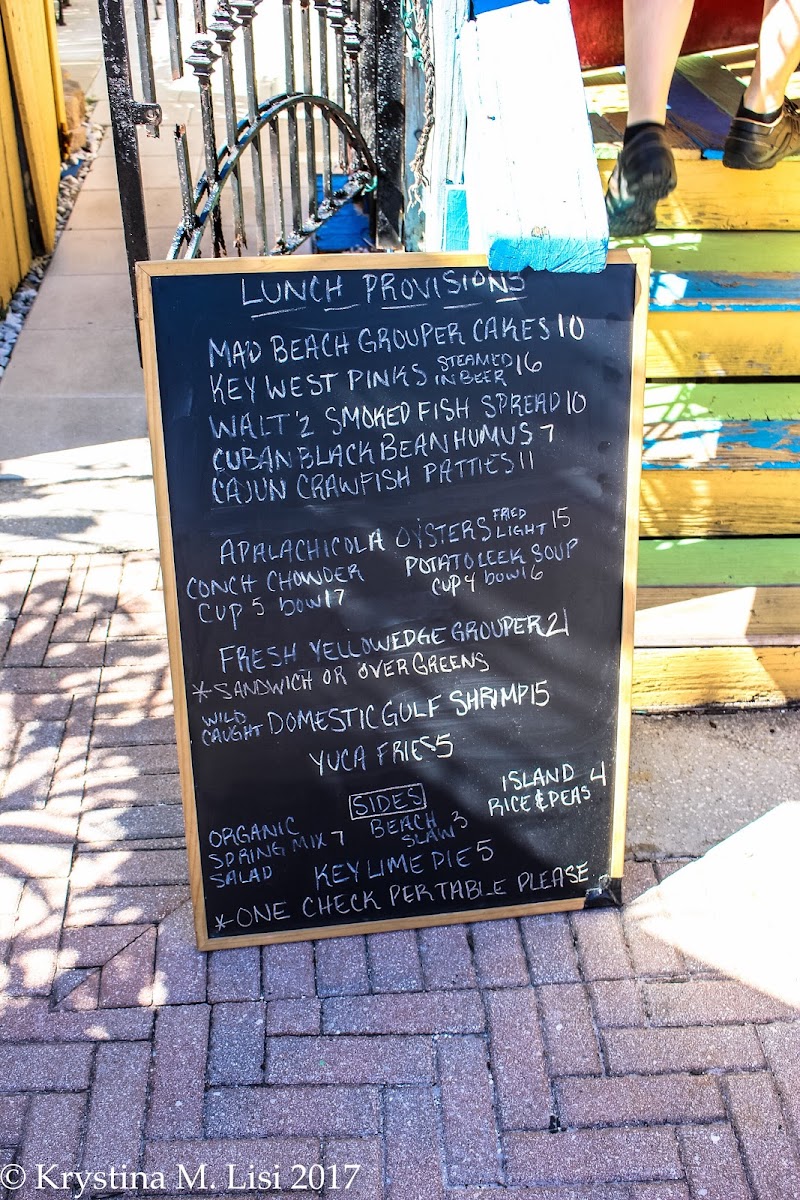 LUNCH PROVISIONS
MAD BEACH GROUPER CAKES 10
KEY WEST PINKS STEAMED IN BEER 16
WALT'Z SMOKED FISH SPREAD 10
CUBAN BLACK BEAN HUMUS 7
CAJUN CRAWFISH PATTIES 11
APALACHICOLA OYSTERS FRIED LIGHT 15
CONCH CHOWDER
CUP 5 BOWL 7
POTATO LEEK SOUP
CUP 4 BOWL 6
FRESH YELLOWEDGE GROUPER 21
*SANDWICH OR OVER GREENS
WILD CAUGHT DOMESTIC GULF SHRIMP 15
YUCA FRIES 5
SIDES
ISLAND
RICE & PEAS 4
ORGANIC
SPRING MIX 7
SALAD
BEACH
SLAW 3
KEY LIME PIE 5
*ONE CHECK PER TABLE PLEASE
© Krystina M. Lisi 2017